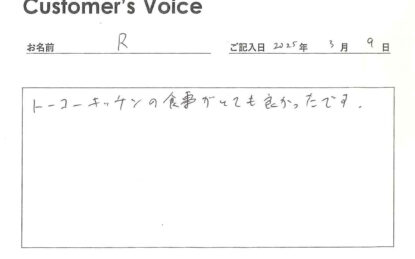 Customer's Voice
お名前 R ご記入日 2025年 3月 9日
トーコーキッチンの食事がとても良かったです。